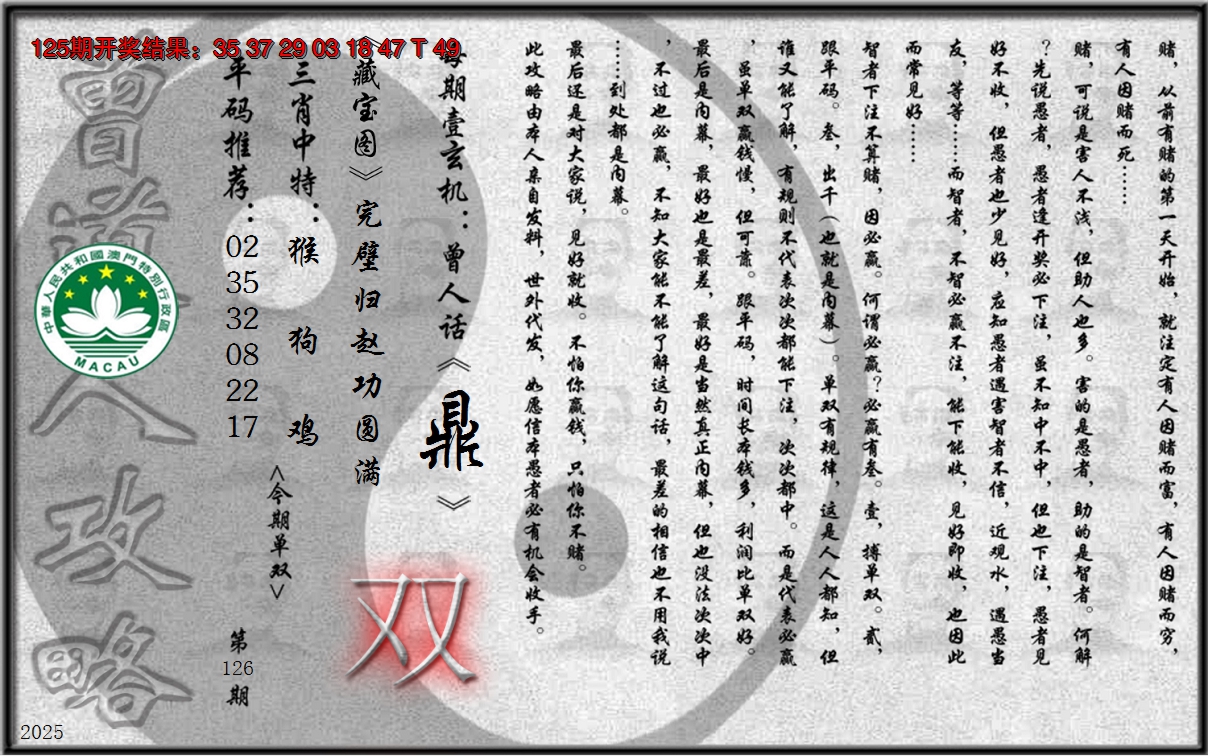 125期开奖结果：35 37 29 03 18 47 T 49
赌，从前有赌的第一天开始，就注定有人因赌而富，有人因赌而穷，
有人因赌而死……
赌，可说是害人不浅，但助人也多。害的是愚者，助的是智者。何解
？先说愚者，愚者逢开奖必下注，虽不知中不中，但也下注，愚者见
好不收，但愚者也少见好，应知愚者遇害智者不信，近观水，遇愚当
友，等等……而智者，不智必赢不注，能下能收，见好即收，也因此
而常见好……
智者下注不算赌，因必赢。何谓必赢？必赢有叁。壹，搏单双。贰，
跟平码。叁，出千（也就是内幕）。单双有规律，这是人人都知，但
谁又能了解，有规则不代表次次都能下注，次次都中。而是代表必赢
，虽单双赢钱慢，但可靠。跟平码，时间长本钱多，利润比单双好。
最后是内幕，最好也是最差，最好是当然真正内幕，但也没法次次中
，不过也必赢，不知大家能不能了解这句话，最差的相信也不用我说
……到处都是内幕。
最后还是对大家说，见好就收。不怕你赢钱，只怕你不赌。
此攻略由本人亲自发料，世外代发，如愿信本愚者必有机会收手。
每期壹玄机：曾人话《鼎》
《藏宝图》完璧归赵功圆满
双
三肖中特：猴 狗 鸡
<今期单双>
平码推荐：02 35 32 08 22 17
第126期
曾道人攻略
中華人民共和國澳門特別行政區
MACAU
2025